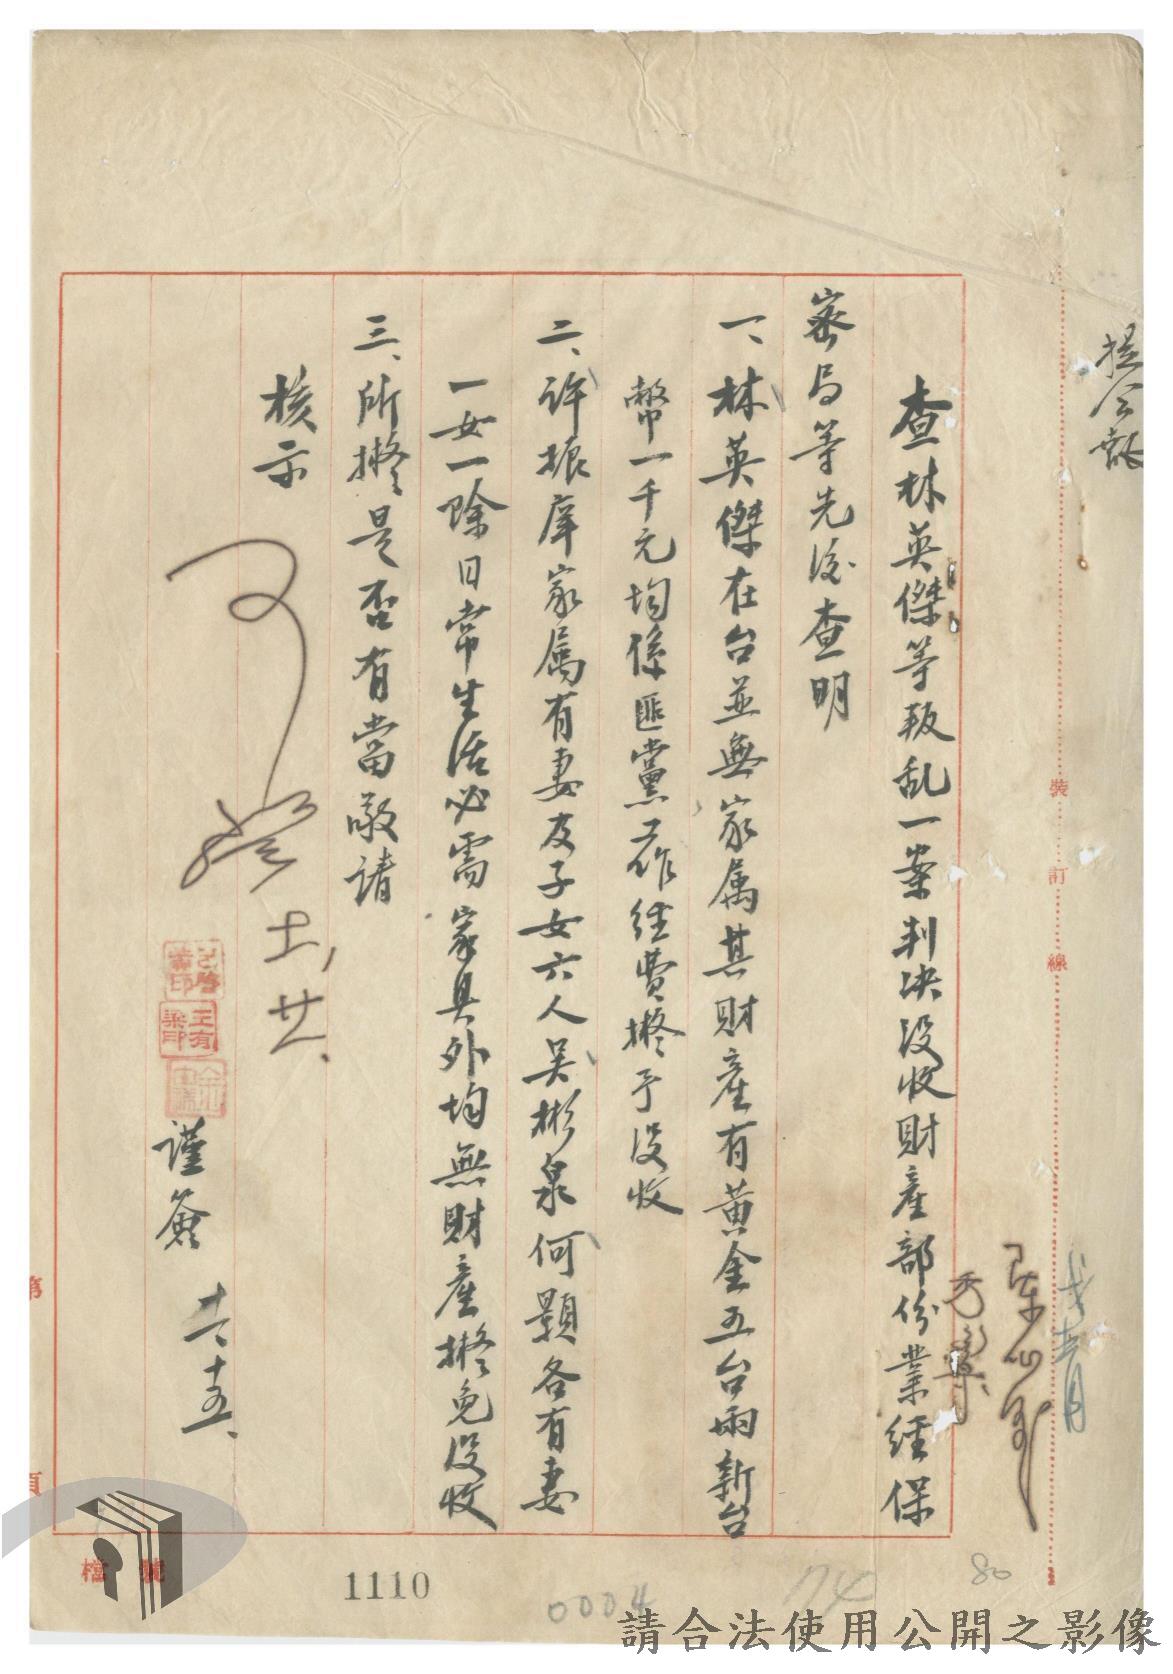 查林英傑等叛乱一案判决没收財產部份業經保
密局等先后查明
一、林英傑在台並無家属其財產有黄金五台両新台
幣一千元均係匪黨工作经費擬予没收
二、許振庠家属有妻及子女六人吴彬泉何顯各有妻
一女一除日常生活必需家具外均無財產擬免没收
三、所擬是否有當敬請
核示
謹簽
十六、十五、
裝
訂
線
第
頁
檔
號
1110
0004
74
80
請合法使用公開之影像